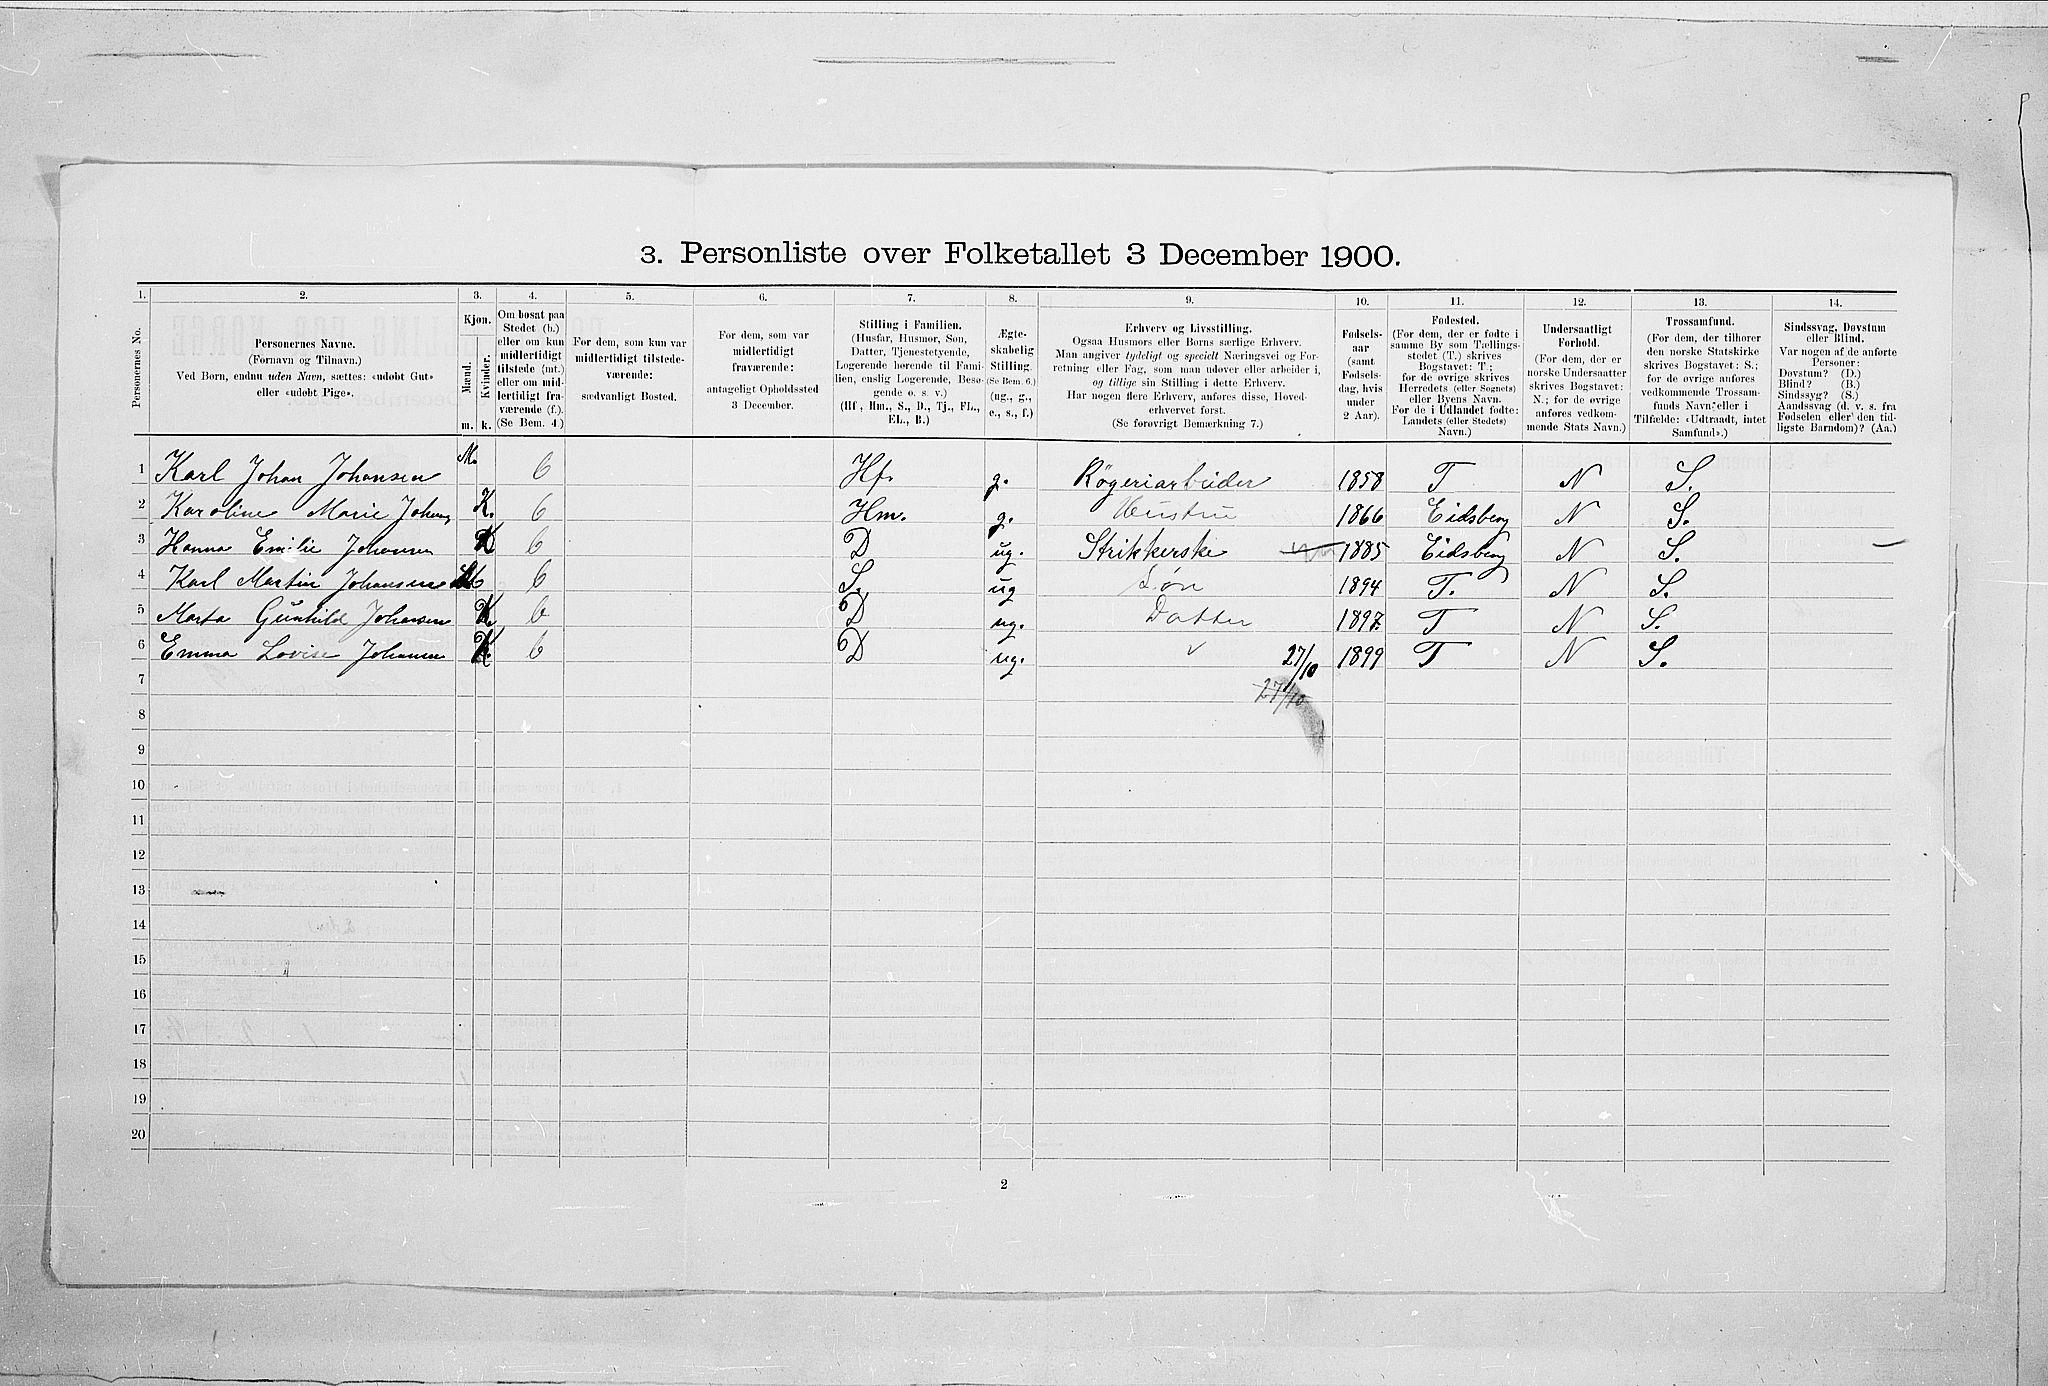 3. Personliste over Folketallet 3 December 1900.
1. 2. 3. 4. 5. 6. 7. 8. 9. 10. 11. 12. 13. 14.
Personernes No.
Personernes Navne.
(Fornavn og Tilnavn.)
Ved Børn, endnu uden Navn, sættes: «udøbt Gut»
eller «udøbt Pige».
Kjøn.
Mænd.
Kvinder.
m. k.
Om bosat paa
Stedet (b.)
eller om kun
midlertidigt
tilstede (mt.)
eller om mid-
lertidigt fra-
værende (f.).
(Se Bem. 4.)
For dem, som kun var
midlertidigt tilstede-
værende:
sædvanligt Bosted.
For dem, som var
midlertidigt
fraværende:
antageligt Opholdssted
3 December.
Stilling i Familien.
(Husfar, Husmor, Søn,
Datter, Tjenestetyende,
Logerende hørende til Fami-
lien, enslig Logerende, Besø-
gende o. s. v.)
(Hf., Hm., S., D., Tj., FL.,
EL., B.)
Ægte-
skabelig
Stilling.
(Se Bem. 6.)
(ug., g.,
e., s., f.)
Erhverv og Livsstilling.
Ogsaa Husmors eller Børns særlige Erhverv.
Man angiver tydeligt og specielt Næringsvei og For-
retning eller Fag, som man udøver eller arbeider i,
og tillige sin Stilling i dette Erhverv.
Har nogen flere Erhverv, anføres disse, Hoved-
erhvervet først.
(Se forøvrigt Bemærkning 7.)
Fødsels-
aar
(samt
Fødsels-
dag, hvis
under
2 Aar).
Fødested.
(For dem, der er fødte i
samme By som Tællings-
stedet (T.) skrives
Bogstavet: T.;
for de øvrige skrives
Herredets (eller Sognets)
eller Byens Navn.
For de i Udlandet fødte:
Landets (eller Stedets)
Navn.)
Undersaatligt
Forhold.
(For dem, der er
norske Undersaatter
skrives Bogstavet:
N.; for de øvrige
anføres vedkom-
mende Stats Navn.)
Trossamfund.
(For dem, der tilhører
den norske Statskirke
skrives Bogstavet: S.;
for de øvrige anføres
vedkommende Trossam-
funds Navn, eller i
Tilfælde: «Udtraadt, intet
Samfund».)
Sindssvag, Døvstum
eller Blind.
Var nogen af de anførte
Personer:
Døvstum? (D.)
Blind? (B.)
Sindssyg? (S.)
Aandssvag (d. v. s. fra
Fødselen eller den tid-
ligste Barndom)? (Aa.)
1 Karl Johan Johansen M. b Hf. g. Røgeriarbeider 1858 T N S.
2 Karoline Marie Johans K. b Hm. g. Hustru 1866 Eidsberg N S.
3 Hanna Emilie Johansen K b D ug. Strikkerske 1885 Eidsberg N S.
4 Karl Martin Johansen M b S. ug Søn 1894 T. N S.
5 Marta Gunhild Johansen K. b D ug. Datter 1897. T N S.
6 Emma Lovise Johansen K. b D ug. 27/10 1899 T N S.
7 27/10
8
9
10
11
12
13
14
15
16
17
18
19
20
2